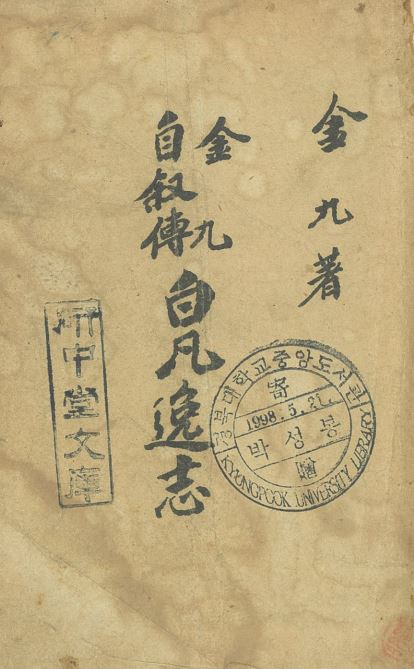 金九著
金九
自叙傳
白凡逸志
中堂文庫
경북대학교중앙도서관
寄
1998. 5. 21.
박성봉
贈
KYUNGPOOK UNIVERSITY LIBRARY